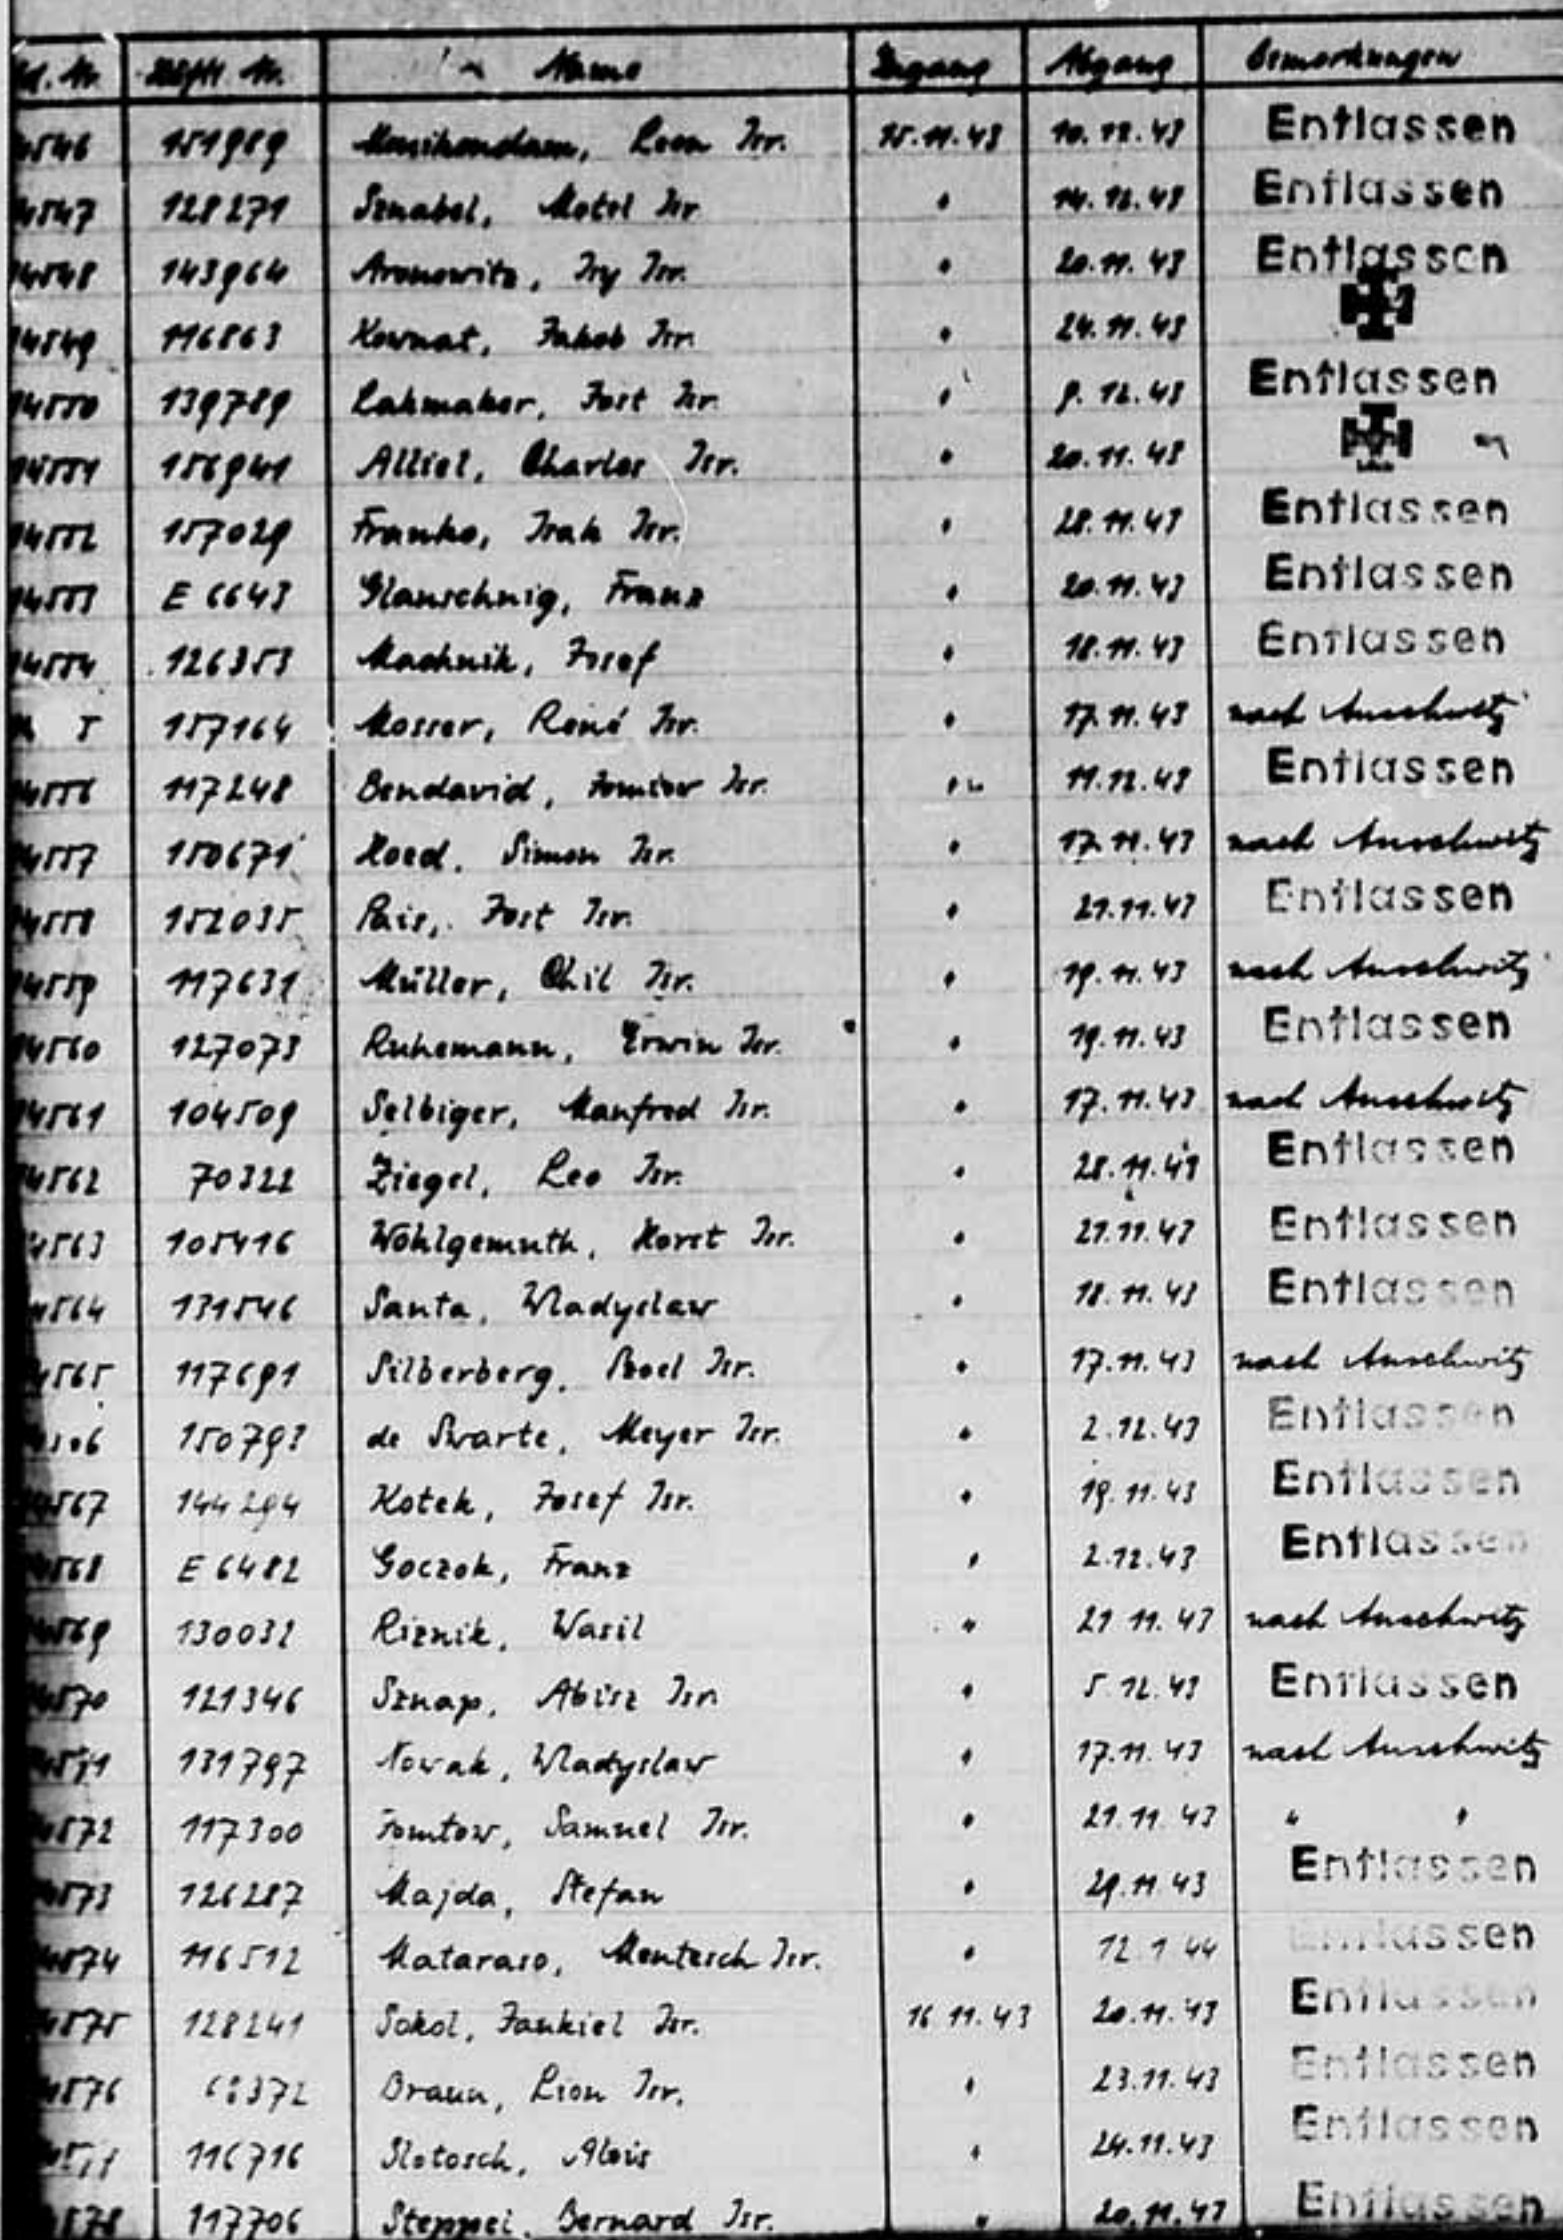 Lfd. Nr. Häftl. Nr. Name Zugang Abgang Bemerkungen
4546 151989 Leon Isr. 15.11.43 10.12.43 Entlassen
4547 128271 Sznabel, Motel Isr. " 14.12.43 Entlassen
4548 143964 Aronowitz, Isy Isr. " 20.11.43 Entlassen
14549 116863 Kownat, Jakob Isr. " 24.11.43
14550 139789 Lakmaker, Jost Isr. " 9.12.43 Entlassen
14551 156941 Alliel, Charles Isr. " 20.11.43
14552 157029 Franko, Isak Isr. " 28.11.43 Entlassen
14553 E 6643 Glanschnig, Franz " 20.11.43 Entlassen
14554 126353 Machnik, Josef " 18.11.43 Entlassen
5 157164 Mosser, René Isr. " 17.11.43 nach Auschwitz
4556 117248 Bendavid, Jomtow Isr. " 11.12.43 Entlassen
4557 150671 Hoed, Simon Isr. " 17.11.43 nach Auschwitz
4558 152035 Pais, Jost Isr. " 21.11.43 Entlassen
4559 117631 Müller, Chil Isr. " 19.11.43 nach Auschwitz
4560 127073 Ruhemann, Erwin Isr. " 19.11.43 Entlassen
4561 104509 Selbiger, Manfred Isr. " 17.11.43 nach Auschwitz
4562 70322 Ziegel, Leo Isr. " 28.11.43 Entlassen
4563 105416 Wohlgemuth, Horst Isr. " 21.11.43 Entlassen
4564 131546 Santa, Wladyslaw " 18.11.43 Entlassen
4565 117691 Silberberg, Isr. " 17.11.43 nach Auschwitz
150793 de Swarte, Meyer Isr. " 2.12.43 Entlassen
4567 144294 Kotek, Josef Isr. " 19.11.43 Entlassen
4568 E 6482 Goczok, Franz " 2.12.43 Entlassen
4569 130032 Riznik, Wasil " 21 11.43 nach Auschwitz
4570 121346 Sznap, Abisz Isr. " 5.12.43 Entlassen
4571 131797 Nowak, Wladyslaw " 17.11.43 nach Auschwitz
4572 117300 Jomtow, Samuel Isr. " 21.11.43 " "
4573 126287 Majda, Stefan " 29.11 43 Entlassen
4574 116512 Mataraso, Mentesch Isr. " 12 1 44 Entlassen
4575 128241 Sokol, Jankiel Isr. 16 11.43 20.11.43 Entlassen
4576 68372 Braun, Leon Isr. " 23.11.43 Entlassen
116716 Slotosch, Alois " 24.11.43 Entlassen
4578 117706 Steppei, Bernard Isr. " 20.11.43 Entlassen